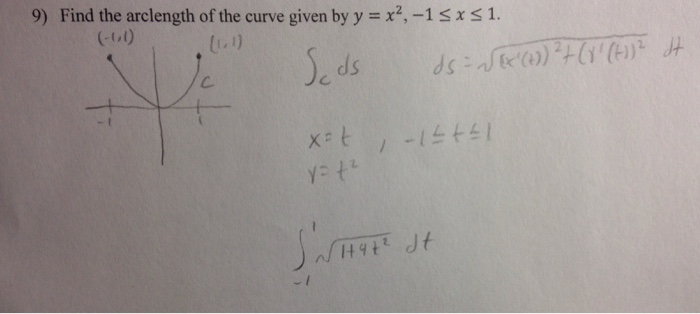 9) Find the arclength of the curve given by y = x², −1 ≤ x ≤ 1.
(-1,1) (1,1)
C
-1 1
∫_C ds ds = √((x'(t))² + (y'(t))²) dt
x = t , -1 ≤ t ≤ 1
y = t²
∫_{-1}^{1} √(1+4t²) dt